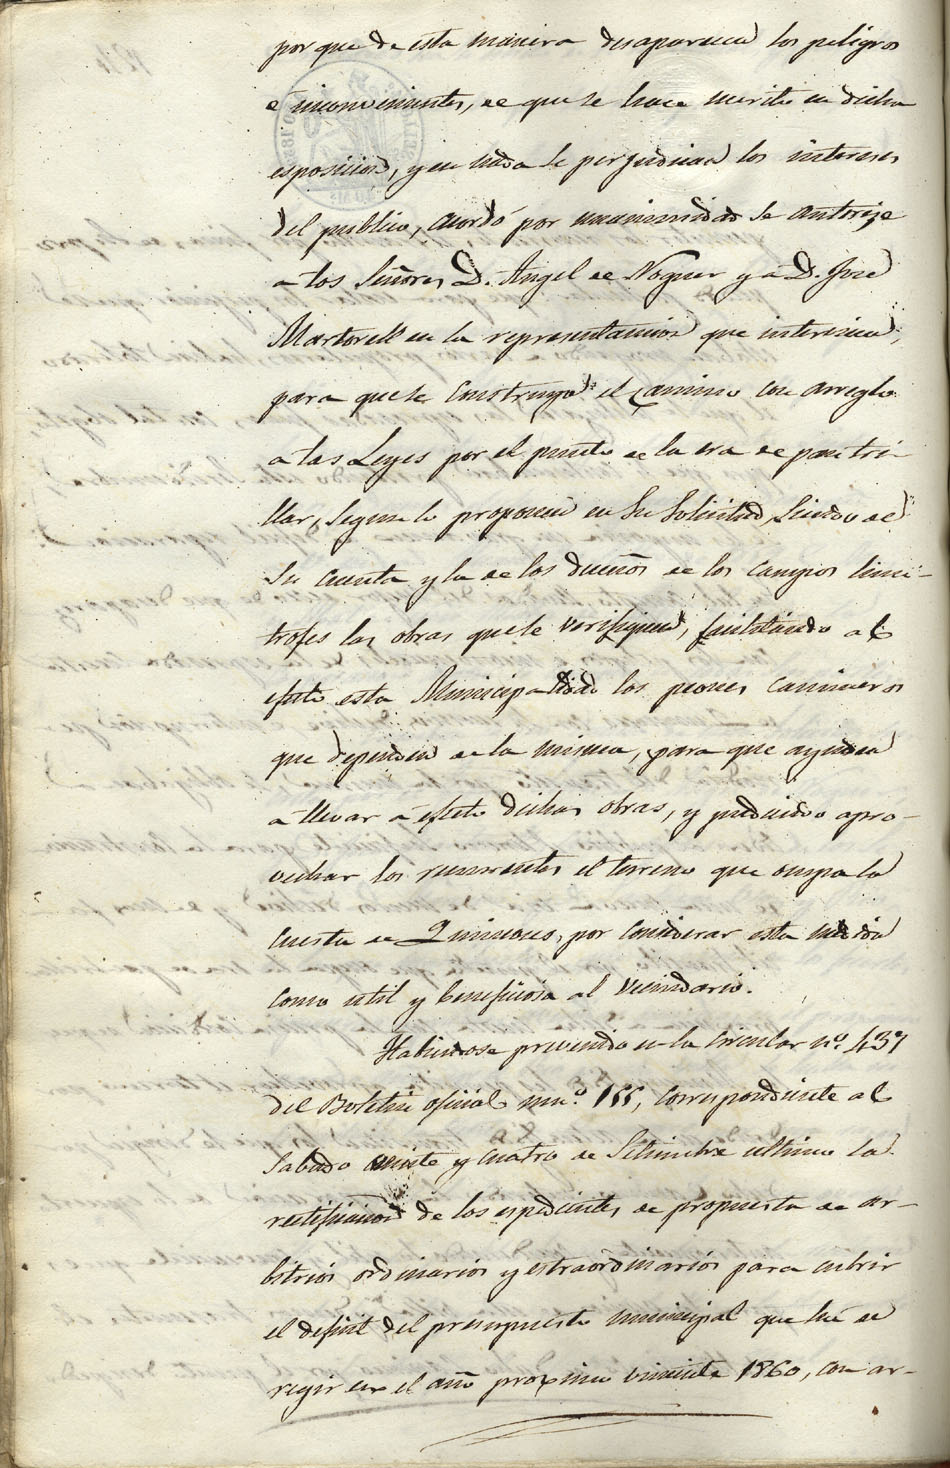 porque de esta manera desaparecen los peligros
é inconvenientes, de que se hace merito en dicha
esposicion, y en nada se perjudican los intereses
del publico, acordó por unanimidad se autorize
a los Señores D. Angel de Noguer y a D. José
Martorell en la representacion que interesan,
para que se construya el camino con arreglo
a las Leyes por el punto de la era de pan tri-
llar, segun lo proponen en su solicitud, siendo de
su cuenta y la de los dueños de los campos limi-
trofes las obras que se verifiquen, facilitando al
efecto esta Municipalidad los peones camineros
que dependen de la misma, para que ayuden
a llevar a efecto dichas obras, y pudiendo apro-
vechar los recurrentes el terreno que ocupa la
cuesta de Quiñones, por considerar esta medida
como util y beneficiosa al vecindario.
Habiendose prevenido en la Circular nº. 437
del Boletin oficial num.º 155, correspondiente al
Sabado veinte y cuatro de Setiembre ultimo la
rectificacion de los espedientes de propuesta de ar-
bitrios ordinarios y estraordinarios para cubrir
el deficit del presupuesto municipal que ha de
regir en el año proximo viniente 1860, con ar-